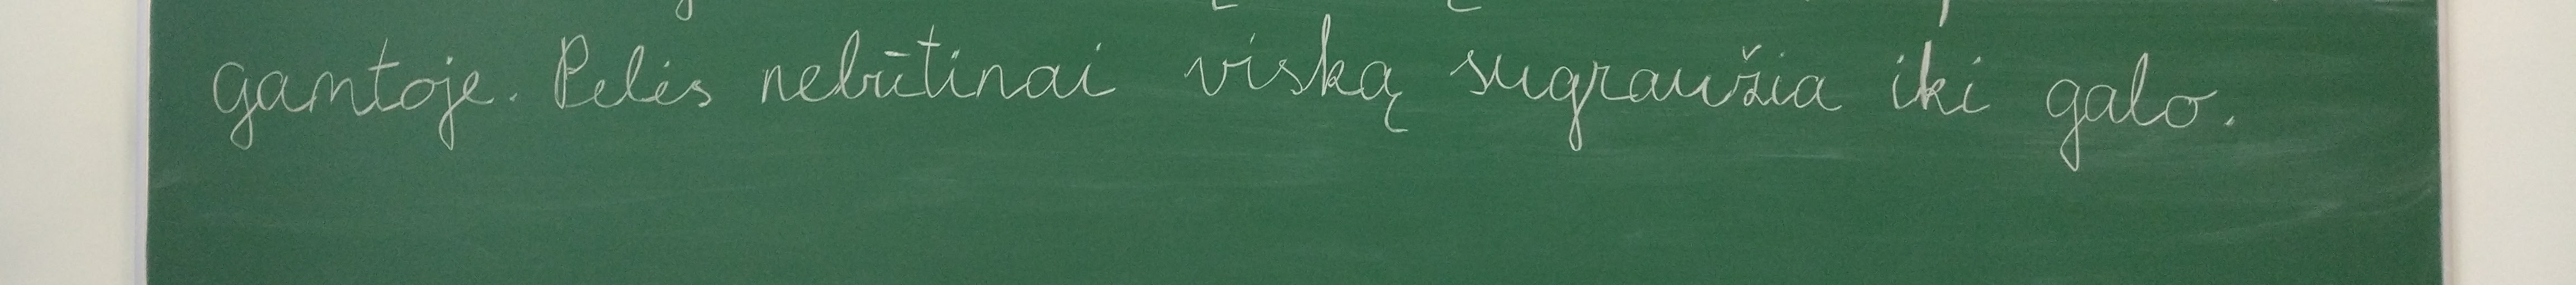 gamtoje. Pelės nebūtinai viską sugraužia iki galo.